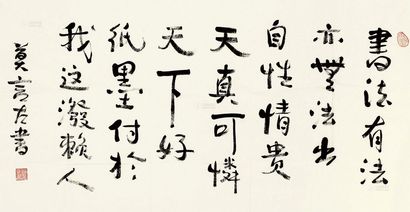 書法有法
亦無法出
自性情貴
天真可憐
天下好
紙墨付於
我这潑賴人
莫言左書